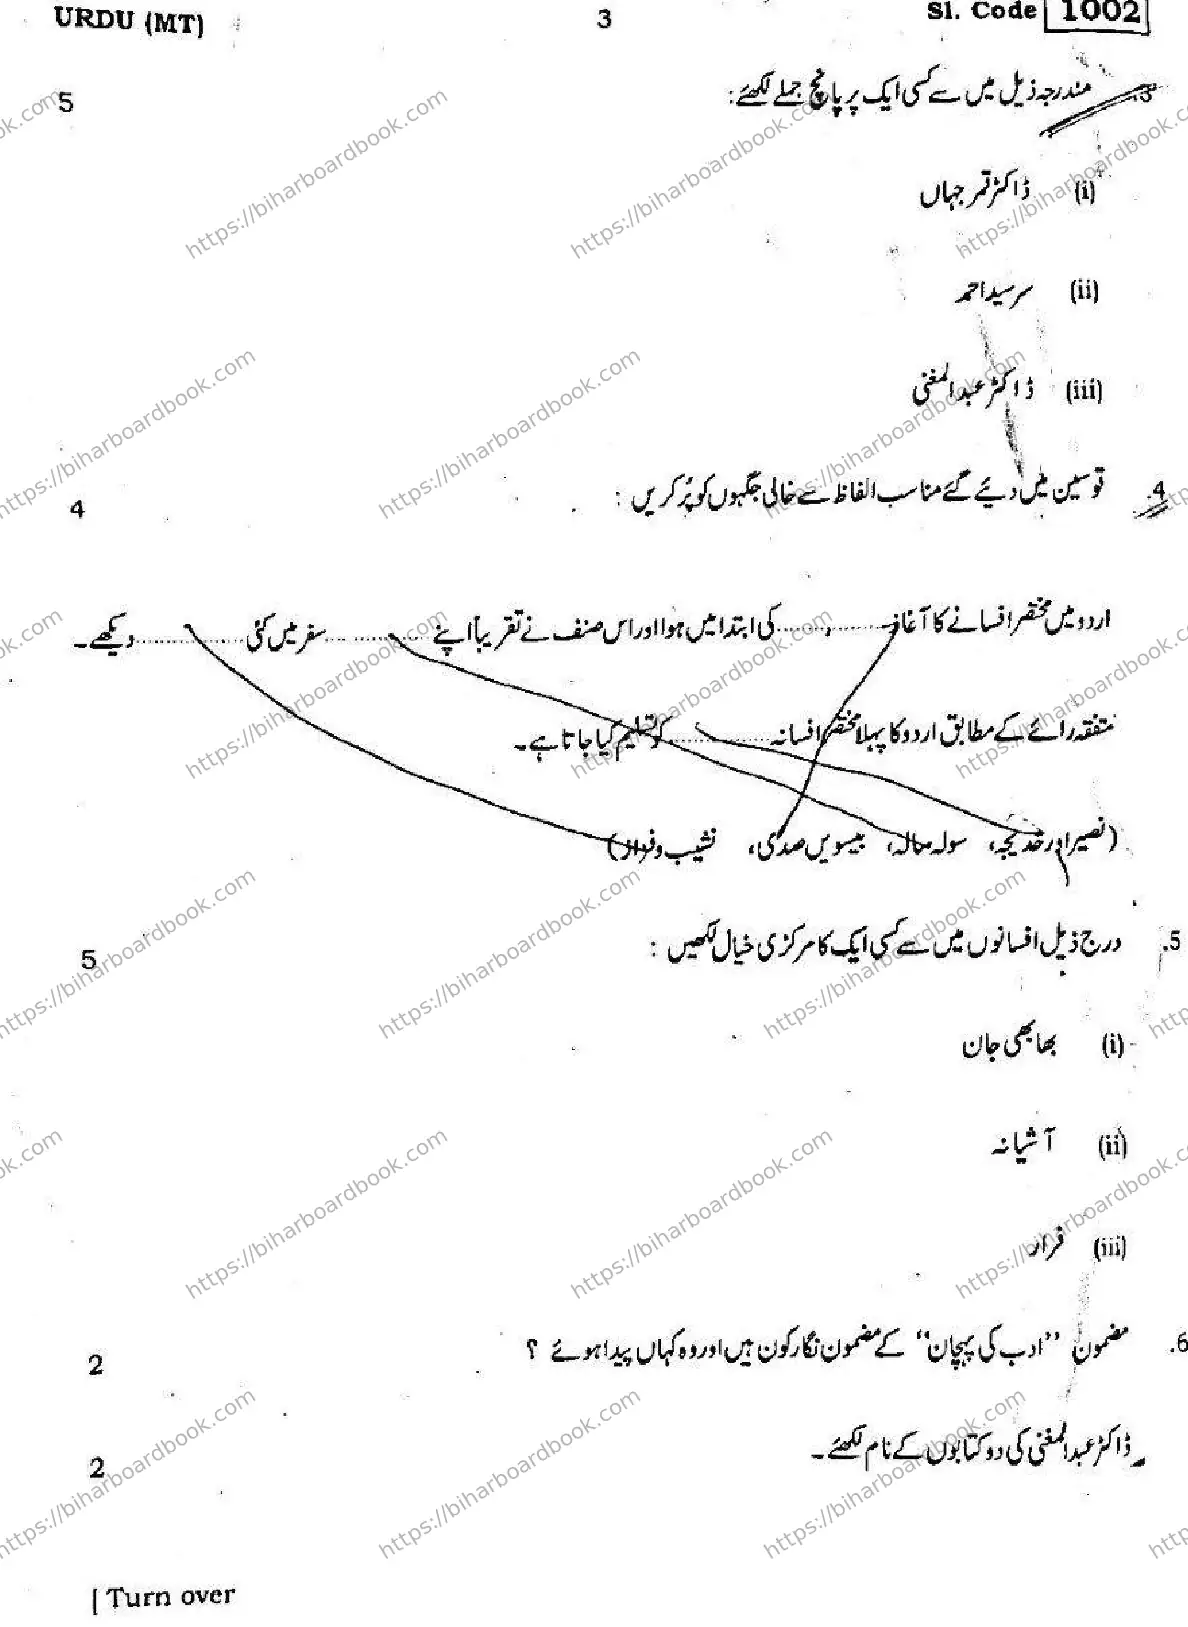 URDU (MT) 3 Sl. Code 1002
3. مندرجہ ذیل میں سے کسی ایک پر پانچ جملے لکھئے : 5
(i) ڈاکٹر قمر جہاں
(ii) سر سید احمد
(iii) ڈاکٹر عبدالمغنی
4. قوسین میں دیئے گئے مناسب الفاظ سے خالی جگہوں کو پُر کریں : 4
اردو میں مختصر افسانے کا آغاز .................. کی ابتدا میں ہوا اور اس صنف نے تقریباً اپنے .................. سفر میں کئی .................. دیکھے۔
متفقہ رائے کے مطابق اردو کا پہلا مختصر افسانہ .................. کو تسلیم کیا جاتا ہے۔
(نصیر اور خدیجہ، سولہ سالہ، بیسویں صدی، نشیب و فراز)
5. درج ذیل افسانوں میں سے کسی ایک کا مرکزی خیال لکھیں : 5
(i) بھابھی جان
(ii) آشیانہ
(iii) فرار
6. مضمون "ادب کی پہچان" کے مضمون نگار کون ہیں اور وہ کہاں پیدا ہوئے ؟ 2
ڈاکٹر عبدالمغنی کی دو کتابوں کے نام لکھئے۔ 2
[ Turn over
https://biharboardbook.com